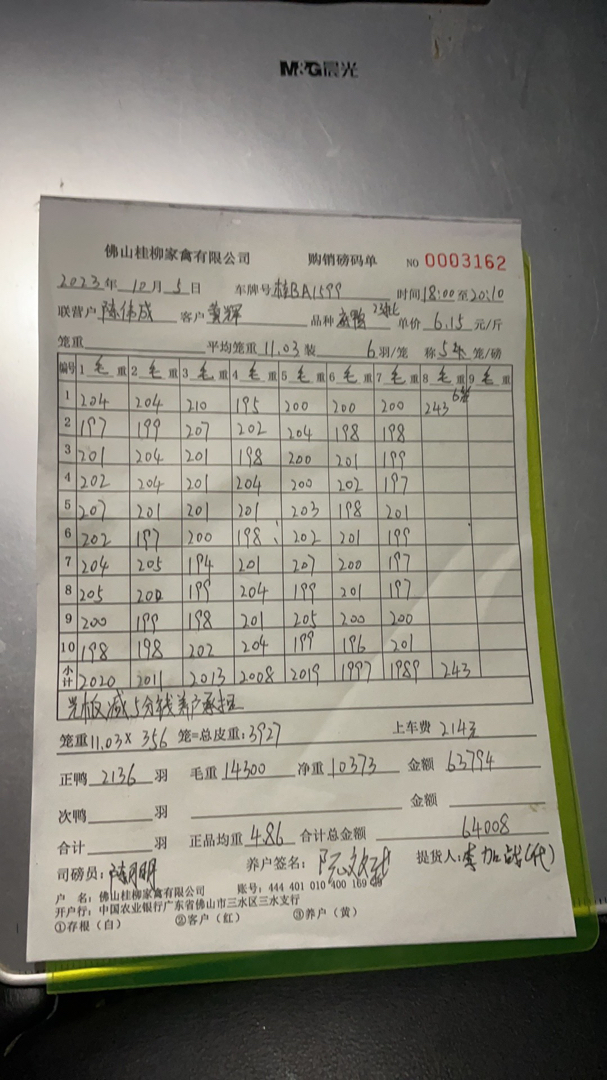 M&G晨光
佛山桂柳家禽有限公司 购销磅码单 NO 0003162
2023年 10月 5日 车牌号桂BA1599 时间18:00至20:10
联营户 陈伟成 客户 黄辉 品种 单价 6.15 元/斤
笼重 平均笼重 11.03 装 6 羽/笼 称 5 笼/磅
编号 1 毛 重 2 毛 重 3 毛 重 4 毛 重 5 毛 重 6 毛 重 7 毛 重 8 毛 重 9 毛 重
1 204 204 210 195 200 200 200 243
2 197 199 207 202 204 198 198
3 201 204 201 198 200 201 199
4 202 204 201 204 200 202 197
5 207 201 201 201 203 198 201
6 202 197 200 198 202 201 199
7 204 205 194 201 207 200 197
8 205 200 199 204 199 201 197
9 200 199 198 201 205 200 200
10 198 198 202 204 199 196 201
小计 2020 2011 2013 2008 2019 1997 1989 243
光板减5分钱养户承担
笼重 11.03 × 356 笼=总皮重: 3927 上车费 214元
正鸭 2136 羽 毛重 14300 净重 10373 金额 63794
次鸭 羽 金额
合计 羽 正品均重 4.86 合计总金额 64008
司磅员: 养户签名: 提货人:李加战(代)
户 名: 佛山桂柳家禽有限公司 账号: 444 401 010 400 169 69
开户行: 中国农业银行广东省佛山市三水区三水支行
①存根（白） ②客户（红） ③养户（黄）